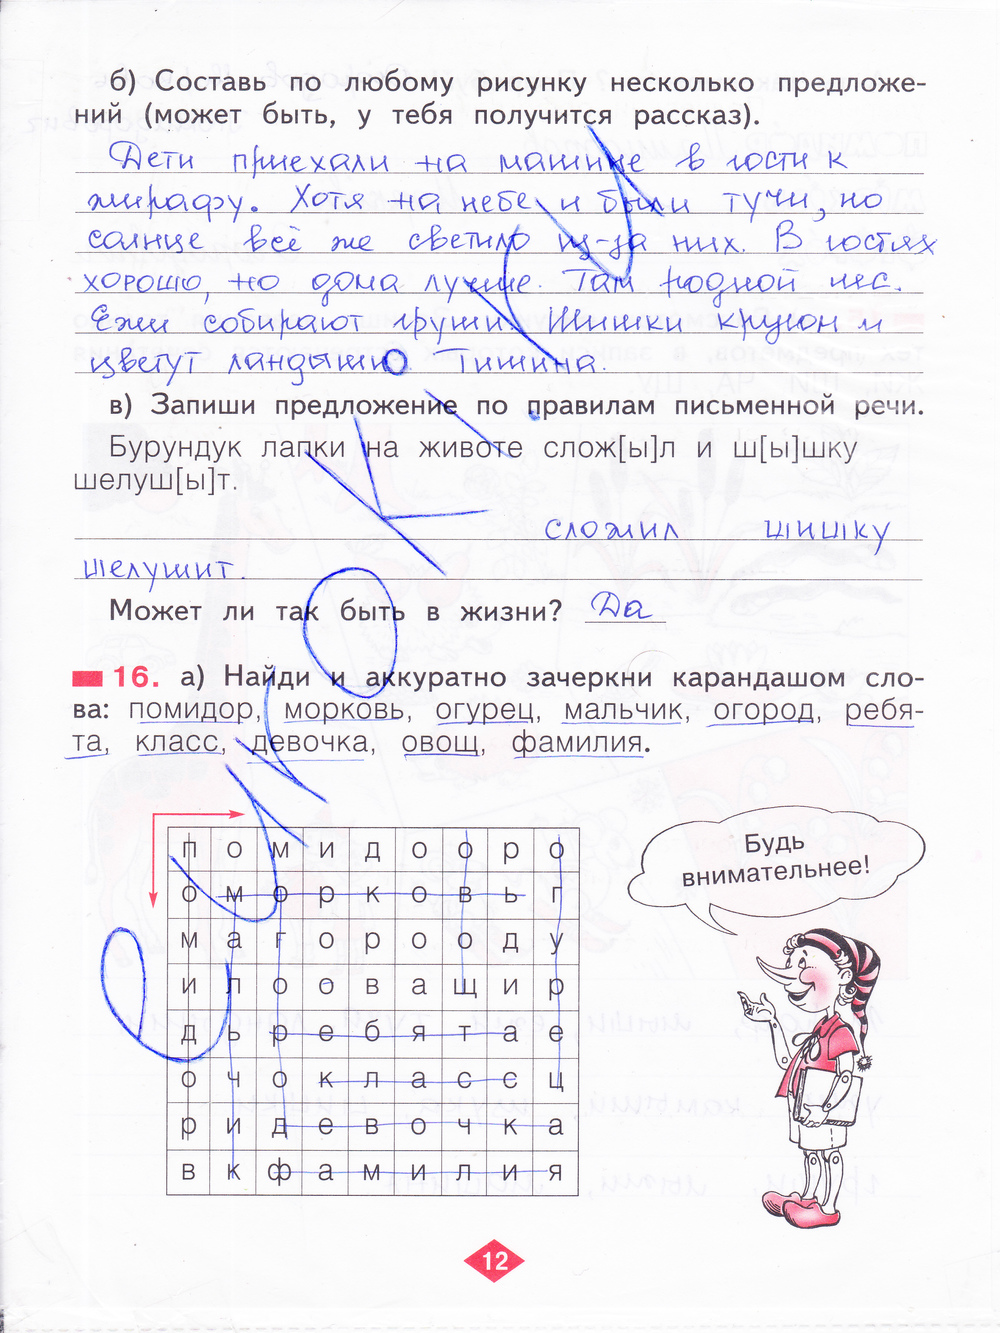 б) Составь по любому рисунку несколько предложе-
ний (может быть, у тебя получится рассказ).
Дети приехали на машине в гости к
жирафу. Хотя на небе и были тучи, но
солнце всё же светило из-за них. В гостях
хорошо, но дома лучше. Там родной лес.
Ежи собирают груши. Шишки кругом и
цветут ландыши. Тишина.
в) Запиши предложение по правилам письменной речи.
Бурундук лапки на животе слож[ы]л и ш[ы]шку
шелуш[ы]т.
сложил шишку
шелушит.
Может ли так быть в жизни? Да
16. а) Найди и аккуратно зачеркни карандашом сло-
ва: помидор, морковь, огурец, мальчик, огород, ребя-
та, класс, девочка, овощ, фамилия.
п о м и д о о р о
о м о р к о в ь г
м а г о р о о д у
и л о о в а щ и р
д ь р е б я т а е
о ч о к л а с с ц
р и д е в о ч к а
в к ф а м и л и я
Будь
внимательнее!
12